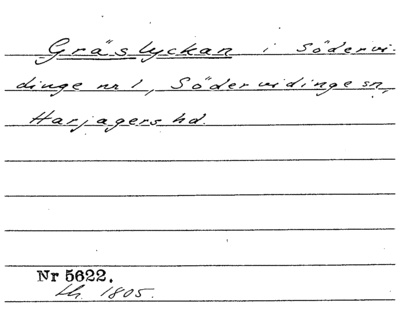 Gräslyckan i Södervi-
dinge nr 1, Södervidinge sn,
Harjagers hd.
Nr 5622.
1805.